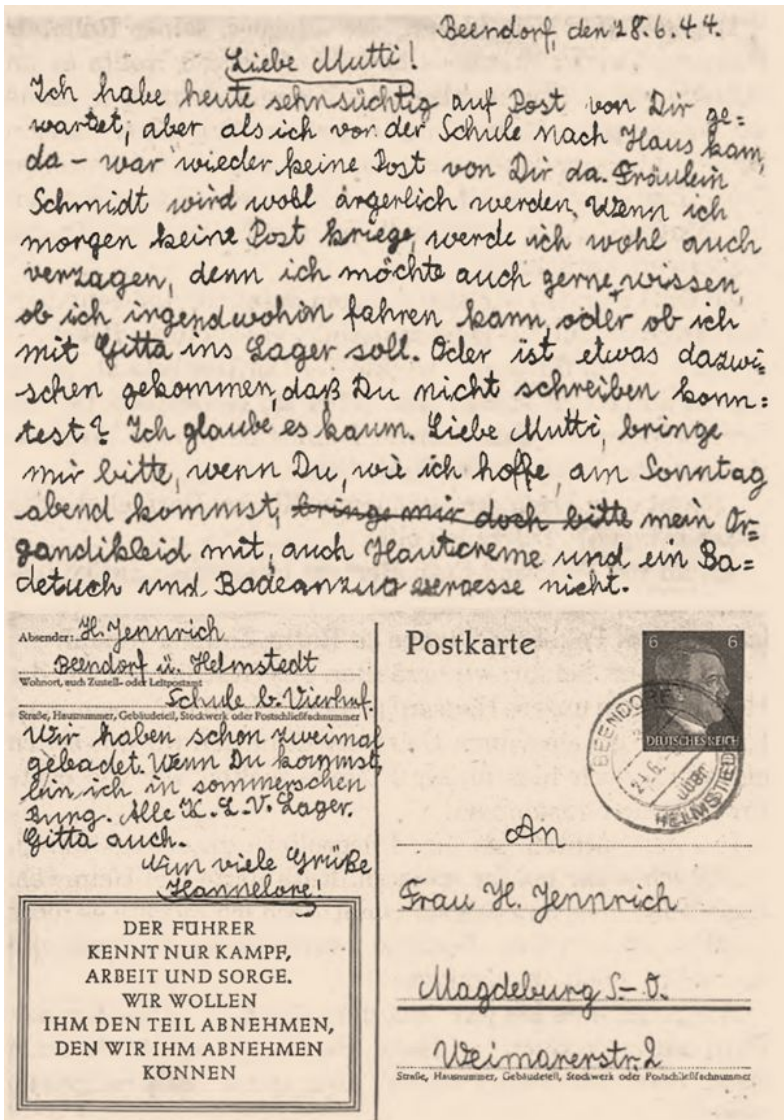 Beendorf, den 28.6.44.
Liebe Mutti!
Ich habe heute sehnsüchtig auf Post von Dir ge=
wartet, aber als ich von der Schule nach Haus kam,
da – war wieder keine Post von Dir da. Fräulein
Schmidt wird wohl ärgerlich werden. Wenn ich
morgen keine Post kriege, werde ich wohl auch
verzagen, denn ich möchte auch gerne wissen,
ob ich irgendwohin fahren kann, oder ob ich
mit Gitta ins Lager soll. Oder ist etwas dazwi=
schen gekommen, daß Du nicht schreiben konn=
test? Ich glaube es kaum. Liebe Mutti, bringe
mir bitte, wenn Du, wie ich hoffe, am Sonntag
abend kommst, bringe mir doch bitte mein Or=
gandikleid mit, auch Hautcreme und ein Ba=
detuch und Badeanzug vergesse nicht.
Absender: H. Jennrich
Beendorf ü. Helmstedt
Wohnort, auch Zustell- oder Leitpostamt
Schule b. Vierhuf.
Straße, Hausnummer, Gebäudeteil, Stockwerk oder Postschließfachnummer
Wir haben schon zweimal
gebadet. Wenn Du kommst,
bin ich in sommerschen
Burg. Alle K.L.V. Lager.
Gitta auch.
Nun viele Grüße
Hannelore!
DER FÜHRER
KENNT NUR KAMPF,
ARBEIT UND SORGE.
WIR WOLLEN
IHM DEN TEIL ABNEHMEN,
DEN WIR IHM ABNEHMEN
KÖNNEN
Postkarte
6 6
DEUTSCHES REICH
BEENDORF
über
HELMSTEDT
An
Frau H. Jennrich
Magdeburg S.-O.
Weimarerstr. 2
Straße, Hausnummer, Gebäudeteil, Stockwerk oder Postschließfachnummer